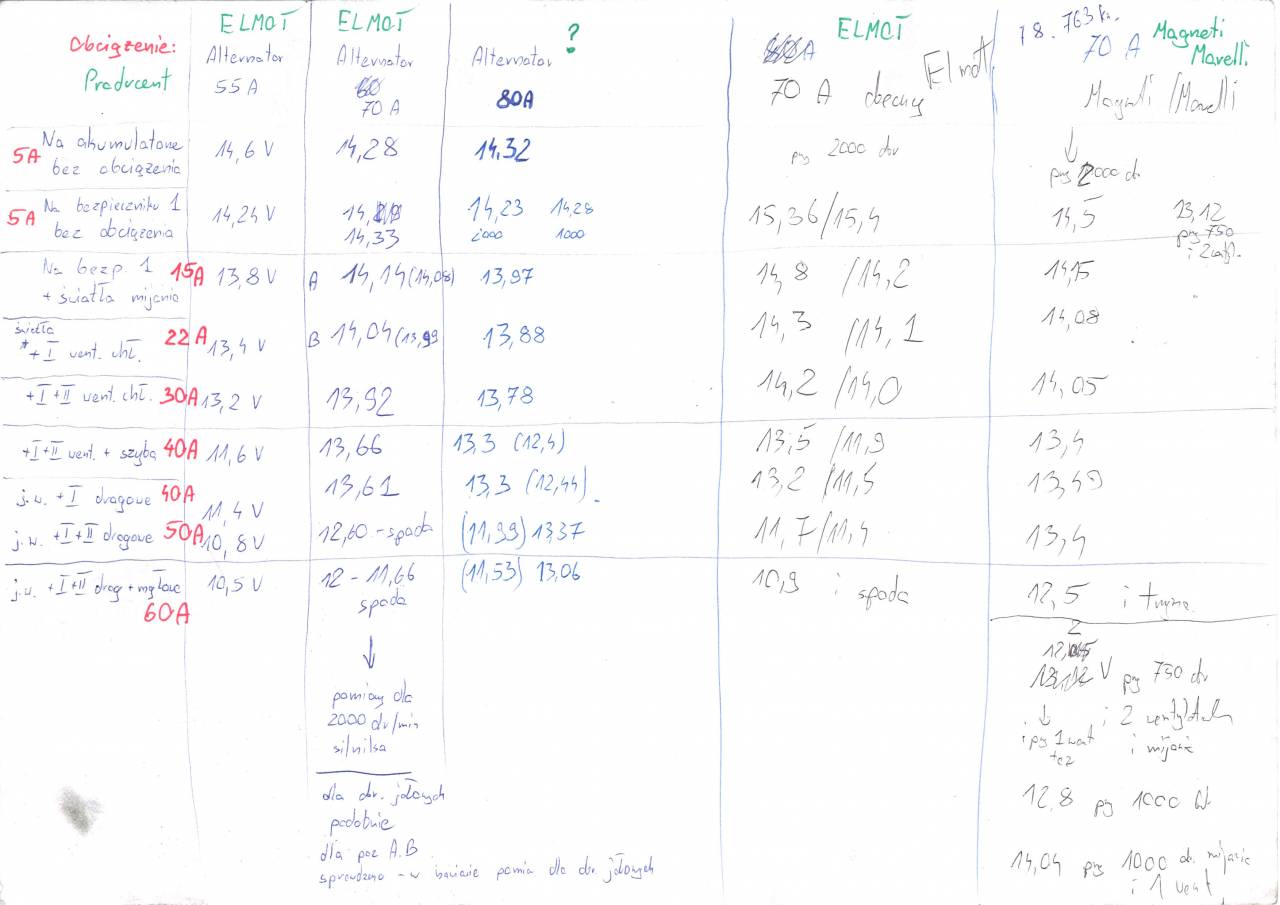 Obciążenie:
Producent
ELMOT
Alternator
55A
ELMOT
Alternator
70 A
?
Alternator
80A
ELMOT
A
70 A obecny Elmot
78.763 k.
70 A Magneti Marelli
Magneti/Marelli
5A Na akumulatorze bez obciążenia
14,6 V
14,28
14,32
przy 2000 obr
↓
przy 2000 ob.
5A Na bezpieczniku 1 bez obciążenia
14,24V
14,
14,33
14,23 14,28
2000 1000
15,36/15,4
14,5
13,12
przy 750
i 2
Na bezp. 1 15A
+ światła mijania
13,8 V
A 14,14 (14,08)
13,97
14,8 /14,2
14,15
światła 22A
*+I vent. chł.
13,4 V
B 14,04 (13,99
13,88
14,3 /14,1
14,08
+I+II vent. chł. 30A
13,2 V
13,92
13,78
14,2 /14,0
14,05
+I+II vent. + szyba 40A
11,6 V
13,66
13,3 (12,4)
13,5 /11,9
13,4
j.w. +I drogowe 40A
11,4 V
13,61
13,3 (12,44)
13,2 /11,5
13,49
j.w. +I+II drogowe 50A
10,8V
12,60 - spada
(11,99) 13,37
11,7/11,4
13,4
j.w. +I+II drog + mgłowe
60A
10,5 V
12 - 11,66
spada
(11,53) 13,06
10,9 i spada
12,5 i trzyma
↓
pomiary dla
2000 obr/min
silnika
dla obr. jałowych
podobnie
dla poz A.B
sprawdzono - w nawiasie pomiar dla obr. jałowych
V przy 750 obr
↓ i 2
i przy 1 went i mijanie
też
12,8 przy 1000
14,04 przy 1000 ob. mijanie
i 1 vent